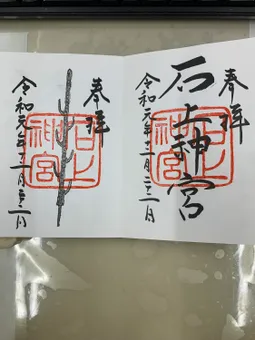 奉拝
石上神宮
令和元年十一月
石上神宮
奉拝
令和元年十一月
石上神宮